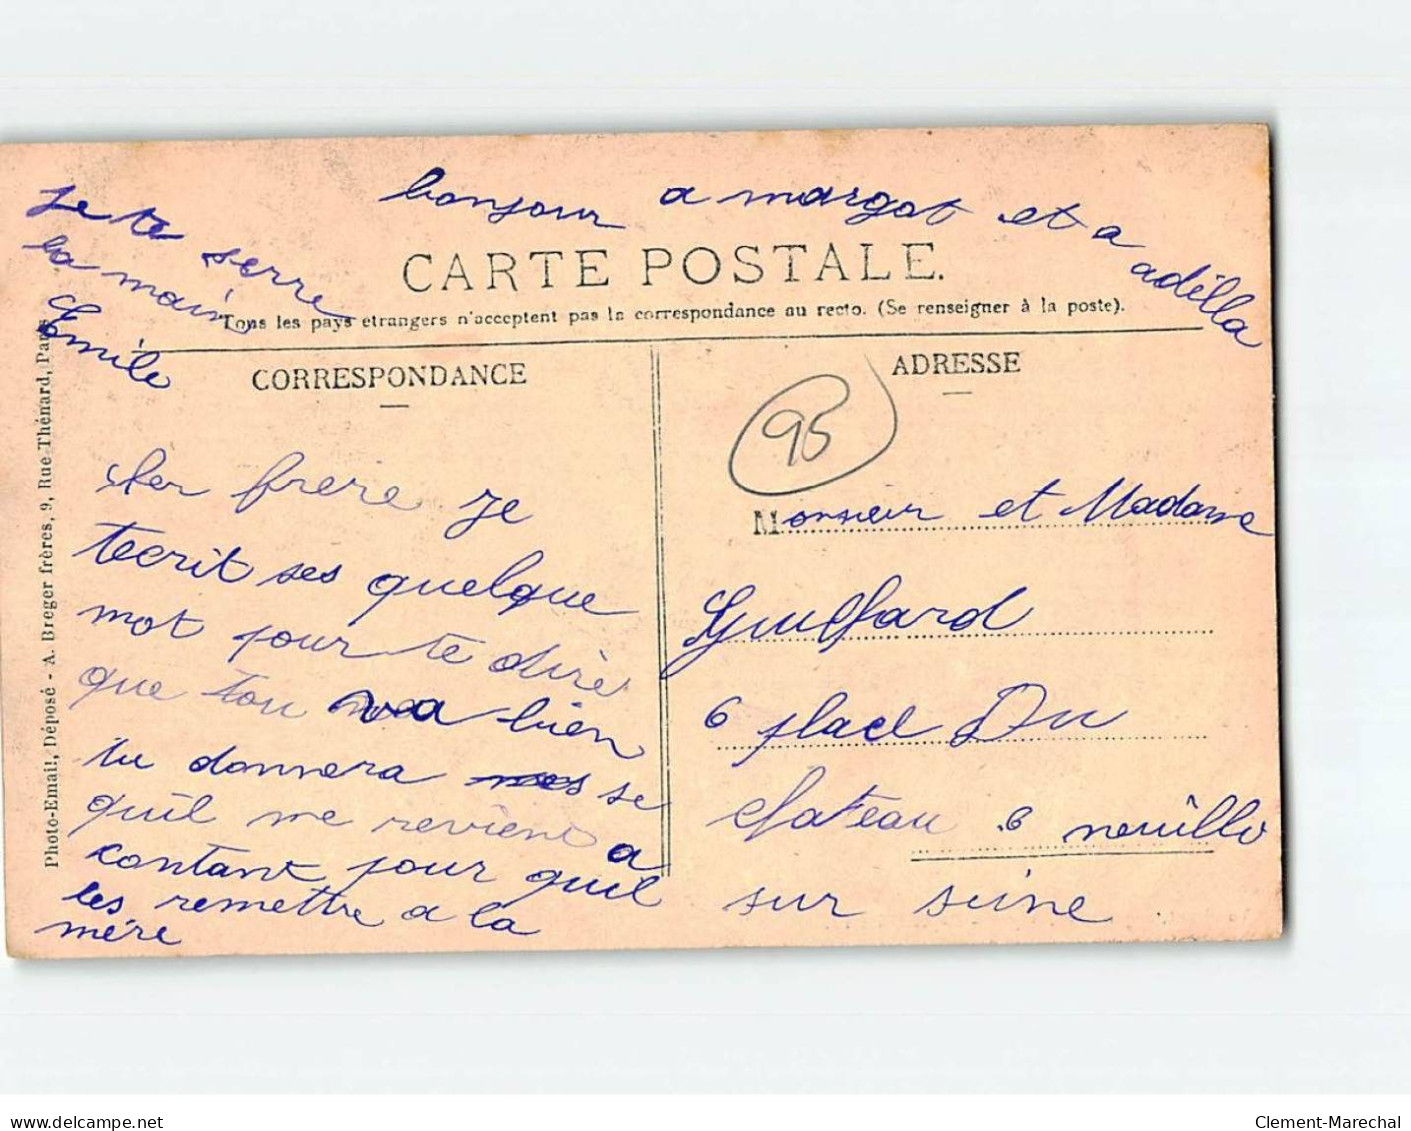 bonjour a margot et a adélla
je te serre
la main
Emile
CARTE POSTALE.
Tous les pays etrangers n'acceptent pas la correspondance au recto. (Se renseigner à la poste).
CORRESPONDANCE
ADRESSE
95
Photo-Email, Déposé - A. Breger frères, 9, Rue Thénard, Paris
cher frere je
tecrit ses quelque
mot pour te dire
que tou va bien
tu donnera se
quil me revient a
contant pour quil
les remettre a la
mére
Monsieur et Madame
Guilfard
6 place Du
chateau 6 neuillo
sur seine
delcampe.net
Clement-Marechal